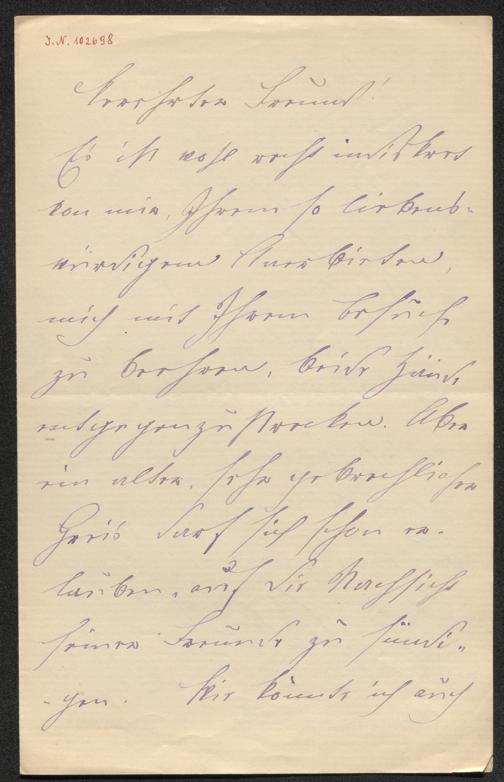 J.N. 102698
Verehrter Freund!
Es ist wohl recht indiskret
von mir, Ihrem so liebens-
würdigem Anerbieten,
mich mit Ihrem Besuch
zu beehren, beide Hände
entgegenzustrecken. Aber
ein alter, sehr gebrechlicher
Greis darf sich schon er-
lauben, auf die Nachsicht
seiner Freunde zu sündi-
-gen. Wie könnte ich auch